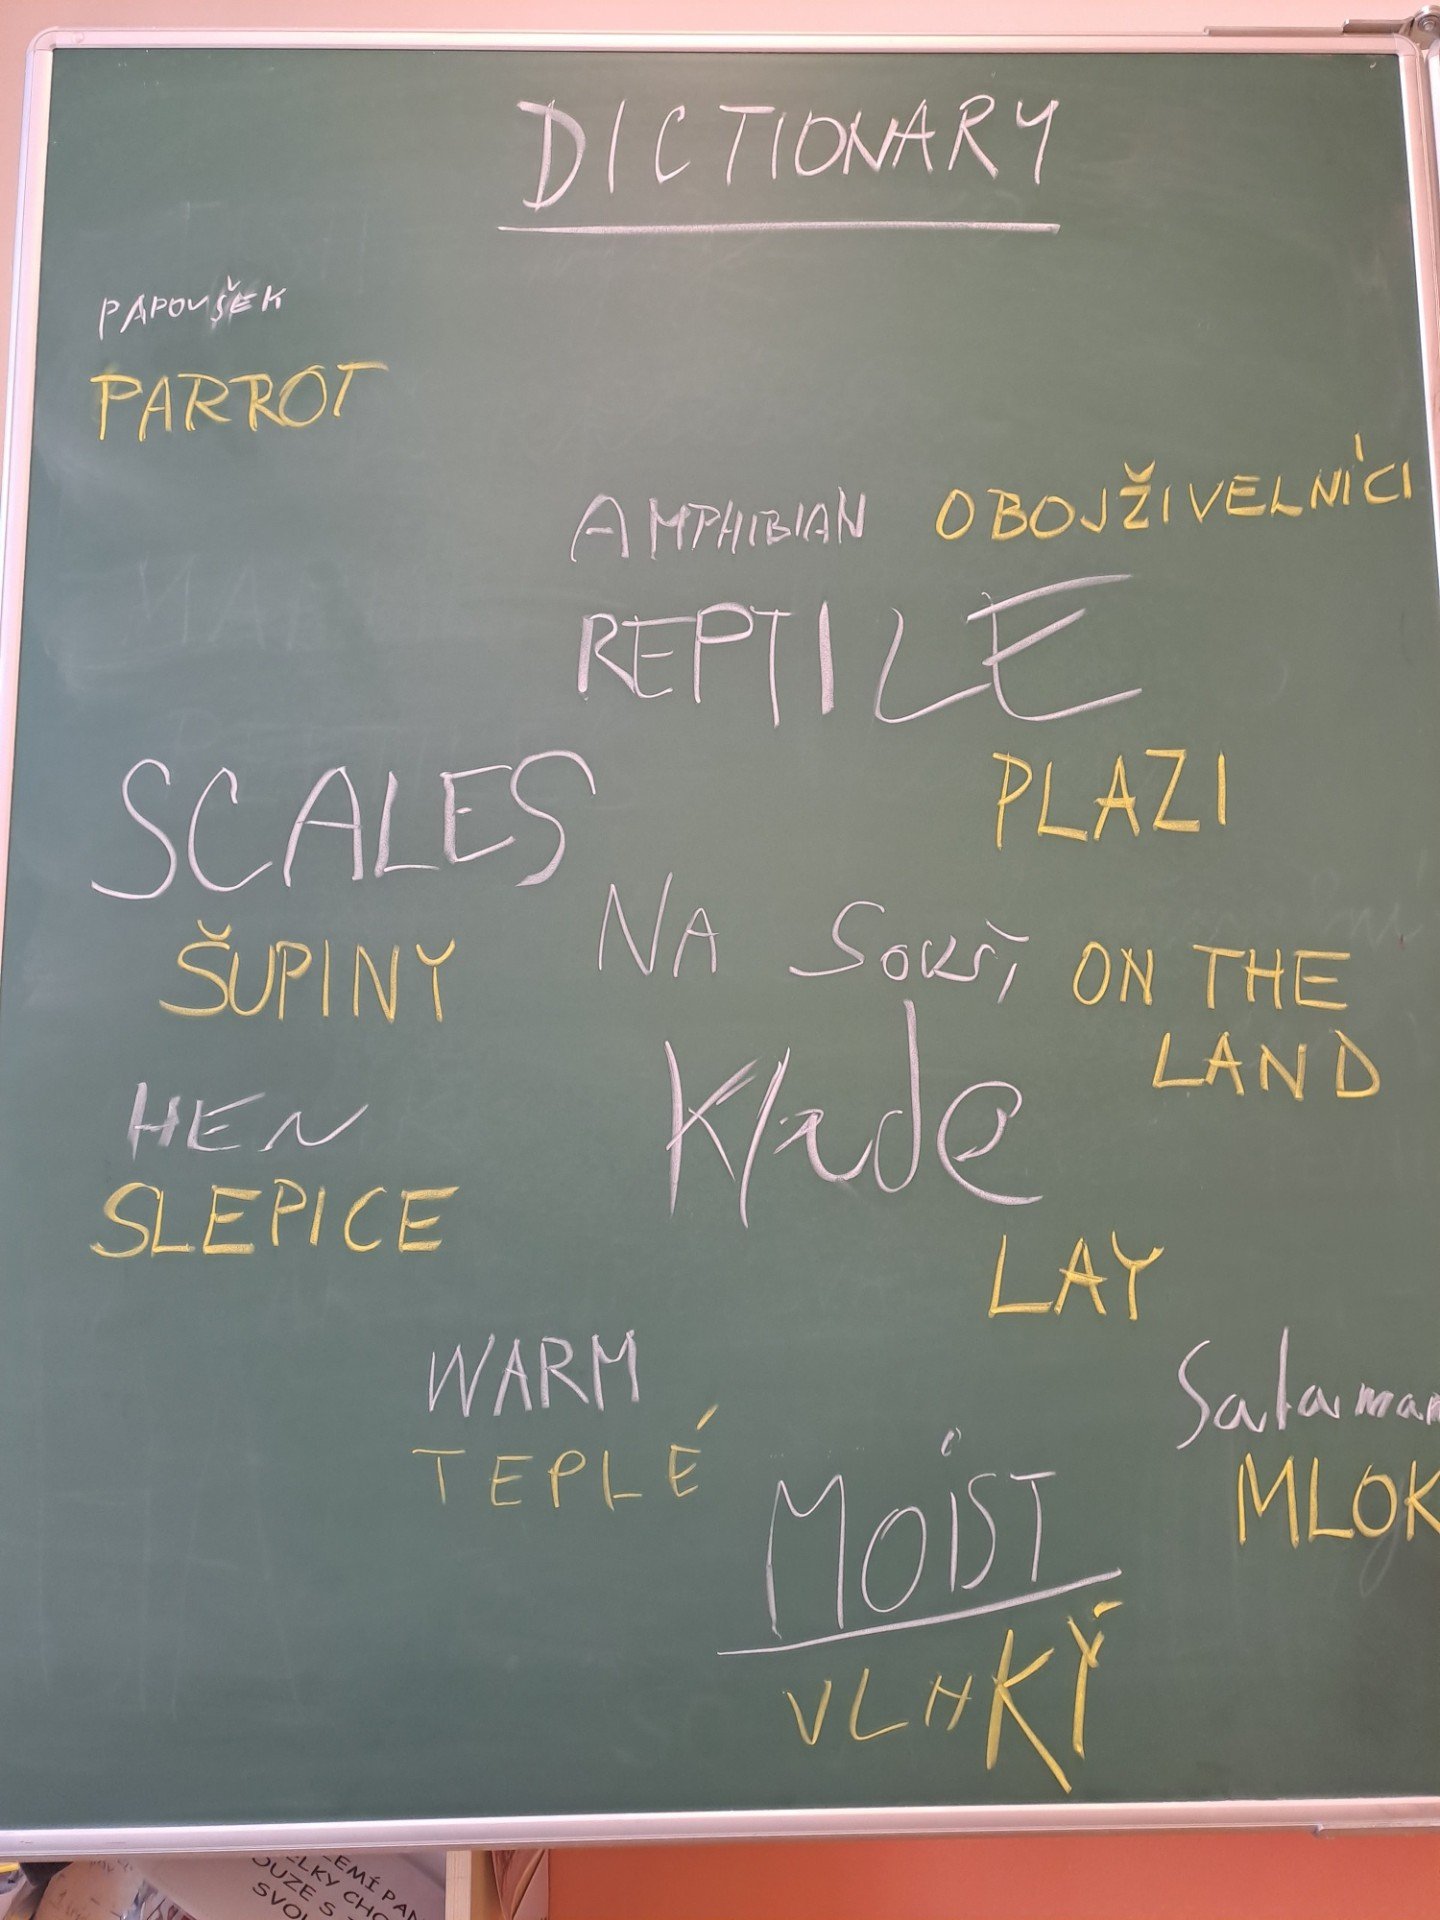 DICTIONARY
PAPOUŠEK
PARROT
AMPHIBIAN OBOJŽIVELNÍCI
REPTILE
PLAZI
SCALES
ŠUPINY
NA Souši ON THE
LAND
Klade
LAY
HEN
SLEPICE
WARM
TEPLÉ
Salaman
MLOK
MOIST
VLHKÝ
ZEMÍ PAN
ELKY CHO
OUZE S
SVOU